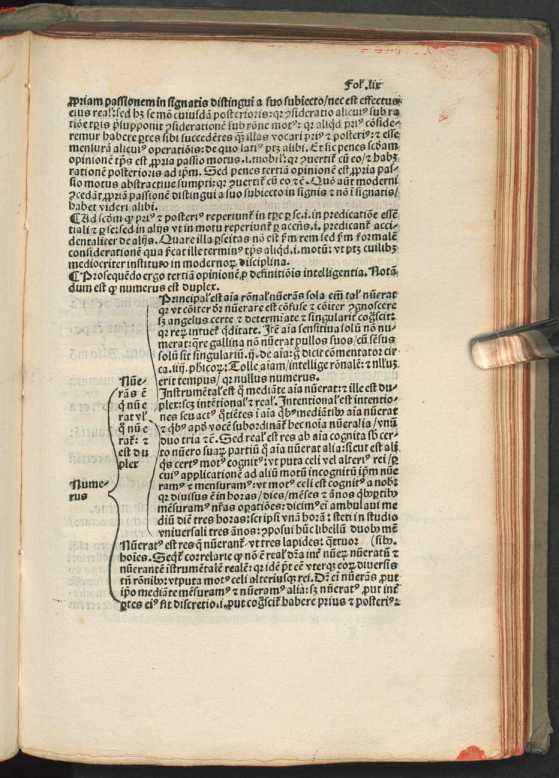 Fol. lix
ꝓpriam passionem in signatis distingui a suo subiecto/nec est effectus
eius real': sed hʒ se mō cuiusdā posterioris: qꝛ ꝯsideratio alicuiꝰ sub ra
tiōe tꝑis p̄supponit ꝯsideratiōe sub rōne motꝰ: qꝛ aliqd priꝰ cōside-
remur habere ꝑtes sibi succedētes q̄ illas vocari priꝰ ⁊ posteriꝰ: ⁊ esse
mensurā alicuiꝰ operatiōis: de quo latiꝰ ptʒ alibi. Et sic penes scdam
opinionē tp̄s est ꝓpria passio motus.i.mobilis: qꝛ ꝯuertit̄ cū eo/⁊ habʒ
rationē posterioris ad ip̄m. Sed penes tertiā opinionē est ꝓpria pas-
sio motus abstractiue sumpti: qꝛ ꝯuertit̄ cū eo ⁊ ē. Quō aūt moderni
ꝯcedāt ꝓpriā passionē distingui a suo subiecto in signis ⁊ nō ī signatis/
habet videri alibi.
¶ Ad scdm qꝛ priꝰ ⁊ posteriꝰ reperiunt̄ in tp̄e ꝑ se.i. in predicatiōe essē
tiali ⁊ ꝑ se: sed in alijs vt in motu reperiunt̄ ꝑ accn̄s.i. predicant̄ acci-
dentaliter de alijs. Quare illa ꝑseitas nō est ẜm rem sed ẜm formalē
considerationē quā p̄cat ille terminꝰ tp̄s aliqd.i. motū: vt ptʒ cuilibʒ
mediocriter instituto in modernoꝝ disciplina.
¶ Prosequēdo ergo tertiā opinionē ꝓ definitiōis intelligentia. Notā
dum est ꝙ numerus est duplex.
Principal' est aīa rōnal' nūerās sola em̄ tal' nūerat
qꝛ vt cōiter dr̄ nūerare est cōfuse ⁊ cōiter ꝯgnoscere
sʒ angelus certe ⁊ determinate ⁊ singularit̄ cogscit:
qꝛ reꝝ intuet̄ qditate. Itē aīa sensitiua solū nō nu-
merat: qre gallina nō nūerat pullos suos/cū sēsus
solū sit singulariū. ij. de aīa: ꝗ dicit cōmentator cir
ca .iiij. phicoꝝ: Tolle aīam/intellige rōnalē: ⁊ nllꝰ
erit tempus/qꝛ nullus numerus.
Nūe-
rās ē
q̄ nūe
rat vl'
q̄ nūe
rat̄: ⁊
est du
plex
Instrumētal' est q̄ mediāte aīa nūerat: ⁊ ille est du-
plex: scʒ intētional' ⁊ real'. Intentional' est intentio-
nes seu actꝰ qntitētes ī aīa qbꝰ mediātibꝰ aīa nūerat
⁊ qbꝰ apd' voce subordinat̄ hec noīa nūeralia/vnū
duo tria ⁊c. Sed real' est res ab aīa cognita sb' cer-
to nūero suaꝝ partiū q̄ aīa nūerat alia: sicut est aliqs
certꝰ motꝰ cognitꝰ: vt puta celi vel alteriꝰ rei/ꝑ
cuiꝰ applicationē ad aliū motū incognitū ip̄m nūe
ramꝰ ⁊ mensuramꝰ: vt motꝰ celi est cognitꝰ a nobis
qꝛ diuisus ē in horas/dies/mēses ⁊ ānos qbꝰ
mēsuramꝰ nr̄as oꝑatiōes: dicimꝰ em̄ ambulaui me
diū diē tres horas: scripsi vnā horā: steti in studio
vniuersali tres ānos: ꝯposui hūc libellū duobꝰ mē
(sibꝰ.
Nume-
rus
Nūeratꝰ est res q̄ nūerant̄ vt tres lapides: qtuor
hoīes. Seqt̄ correlarie ꝙ nō ē real' dr̄ia int̄ nūeꝝ nūeratū ⁊
nūerantē instrumētalē realē: qꝛ idē pt̄ eē vterqꝫ eoꝝ diuersis
tn̄ rōnibꝰ: vt puta motꝰ celi alteriusqꝫ rei. Dr̄ em̄ nūerās ꝓut
ip̄o mediāte mēsuramꝰ ⁊ nūeramꝰ alia: sʒ nūeratꝰ ꝓut int̄
ꝑtes eiꝰ fit discretio.i.ꝓut cogscit̄ habere prius ⁊ posteriꝰ: